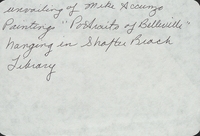 unveiling of Mike Accurzo
Paintings "Portraits of Belleville"
hanging in Shafter Branch
Library